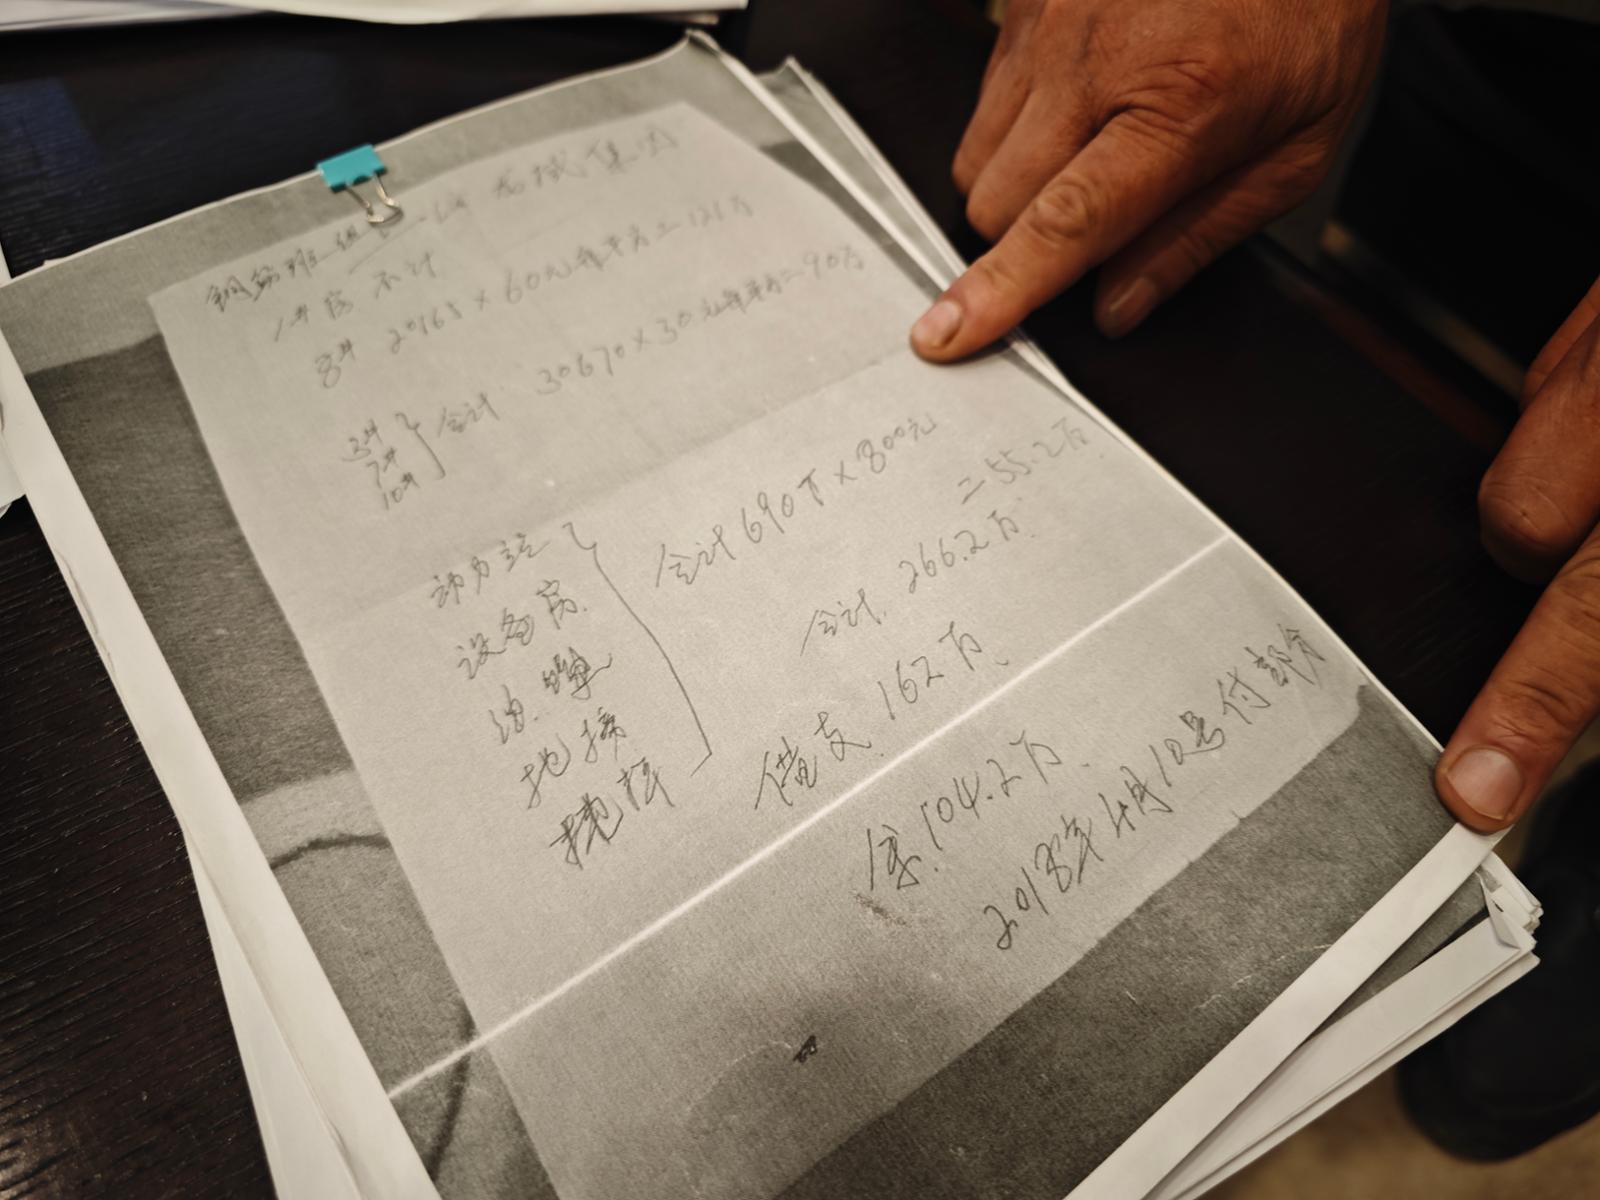 钢筋班组 龙城集团
1#房 不计
8# 20165×60元每平方=121万
3#
7#
10#
合计 30670×30元每平方=90万
动力站
设备房
油罐
地磅
合计690T×800元
=55.2万
合计 266.2万
借支 162万
余 104.2万
2018年4月10号付部分